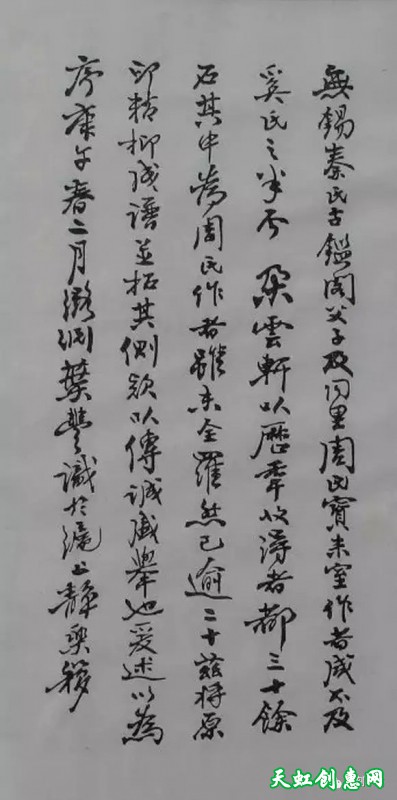 無錫秦氏古鑑閣父子及同里周氏寶米室作者咸不及
奚氏之半耳 朵雲軒以歷年收得者都三十餘
石其中為周氏作者雖未全羅然已逾二十茲將原
印精柳成譜並拓其側款以傳誠盛舉也爰述以為
序庚午春二月 葉豐識於滬上靜樂簃
天虹创惠网